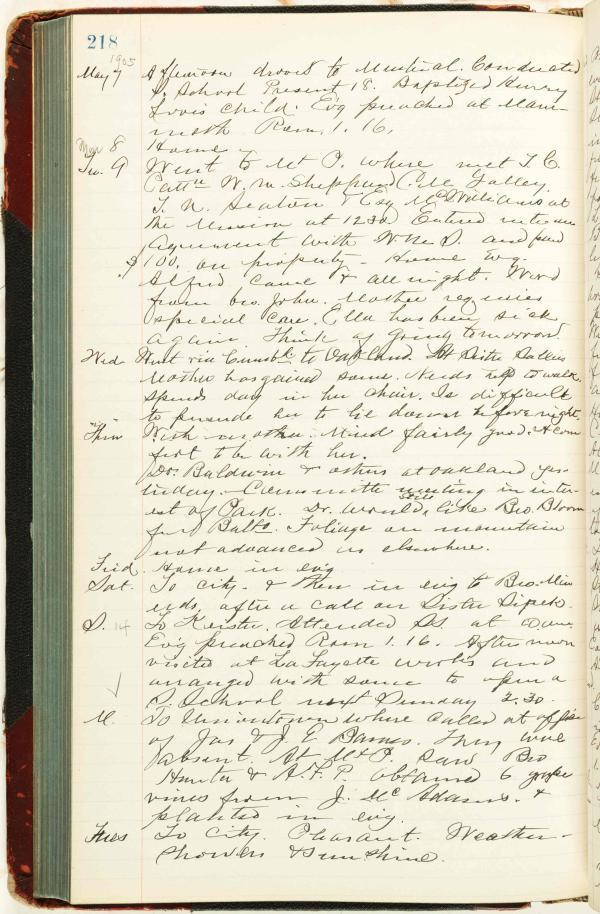 218
1905
May 7 Afternoon drove to Mutual. Conducted
S. School Present 18. Baptized Henry
child. Ev'g preached at Mam-
moth Rom. 1. 16.
May 8 Home
Tu. 9 Went to Mt P. where met T. C.
W. M. Sheppard C. M.
T. N. Seaton & Esq McWilliams at
the Mission at 12 30. Entered into an
Agreement with S. and paid
$100. on property - Home ev'g.
Alfred came & all night. Word
from bro. John. Mother requires
special care. Ella has been sick
again. Think of going tomorrow
Wed Went via Cumb'l'd to Oakland. At Sister Sallies
Mother has gained some. Needs help to walk
spends day in her chair. Is difficult
to persuade her to lie down before night.
Thur With mother. Mind fairly good. A com
fort to be with her.
Dr. Baldwin & others at Oakland yes-
terday. Committee meeting in inter-
est of Park. Dr. would like Bro. Bloom
for Balto. Foliage on mountain
not advanced as elsewhere.
Frid. Home in ev'g
Sat. To city. & then in ev'g to Bro.
after a call on Sister
S. 14 To Keister. Attended SS. at
Ev'g preached Rom 1. 16. Afternoon
visited at La Fayette works and
arranged with some to open a
S. School next Sunday 2.30.
M. To Uniontown where called at office
of Jas & J. E Barnes. They were
absent. At Mt P. saw Bro
Hunter & A. F. P. Obtained 6 grape
vines from J. McAdams. &
planted in ev'g.
Tues To City. Pleasant. Weather -
Showers & Sunshine.